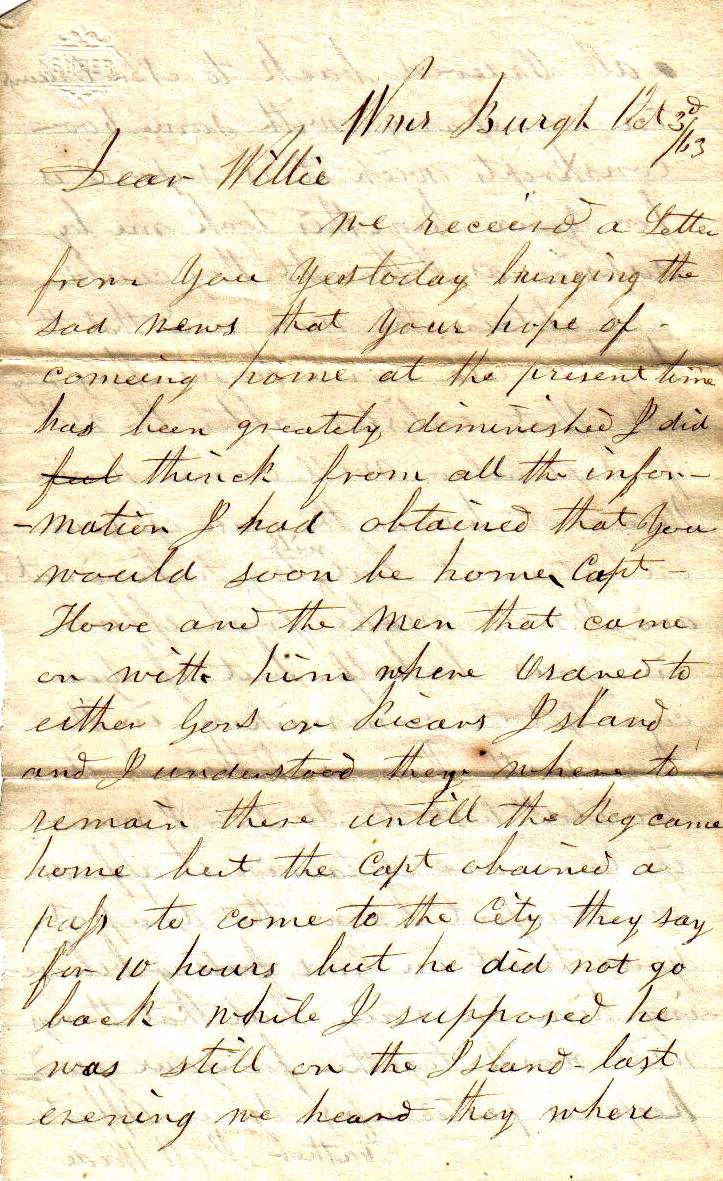 Wms Burgh Oct 3d
/63
Dear Willie
we receivd a Letter
from you yestoday bringing the
sad news that your hope of -
comeing home at the present time
has been greately diminished I did
feel thinck from all the infor-
-mation I had obtained that you
would soon be home, Capt -
Howe and the men that came
on with him where Ordred to
either Govs or Ricars Island
and I understood they where to
remain there untill the Reg came
home but the Capt obained a
pass to come to the City they say
for 10 hours but he did not go
back while I supposed he
was still on the Island - last
evening we heard they where